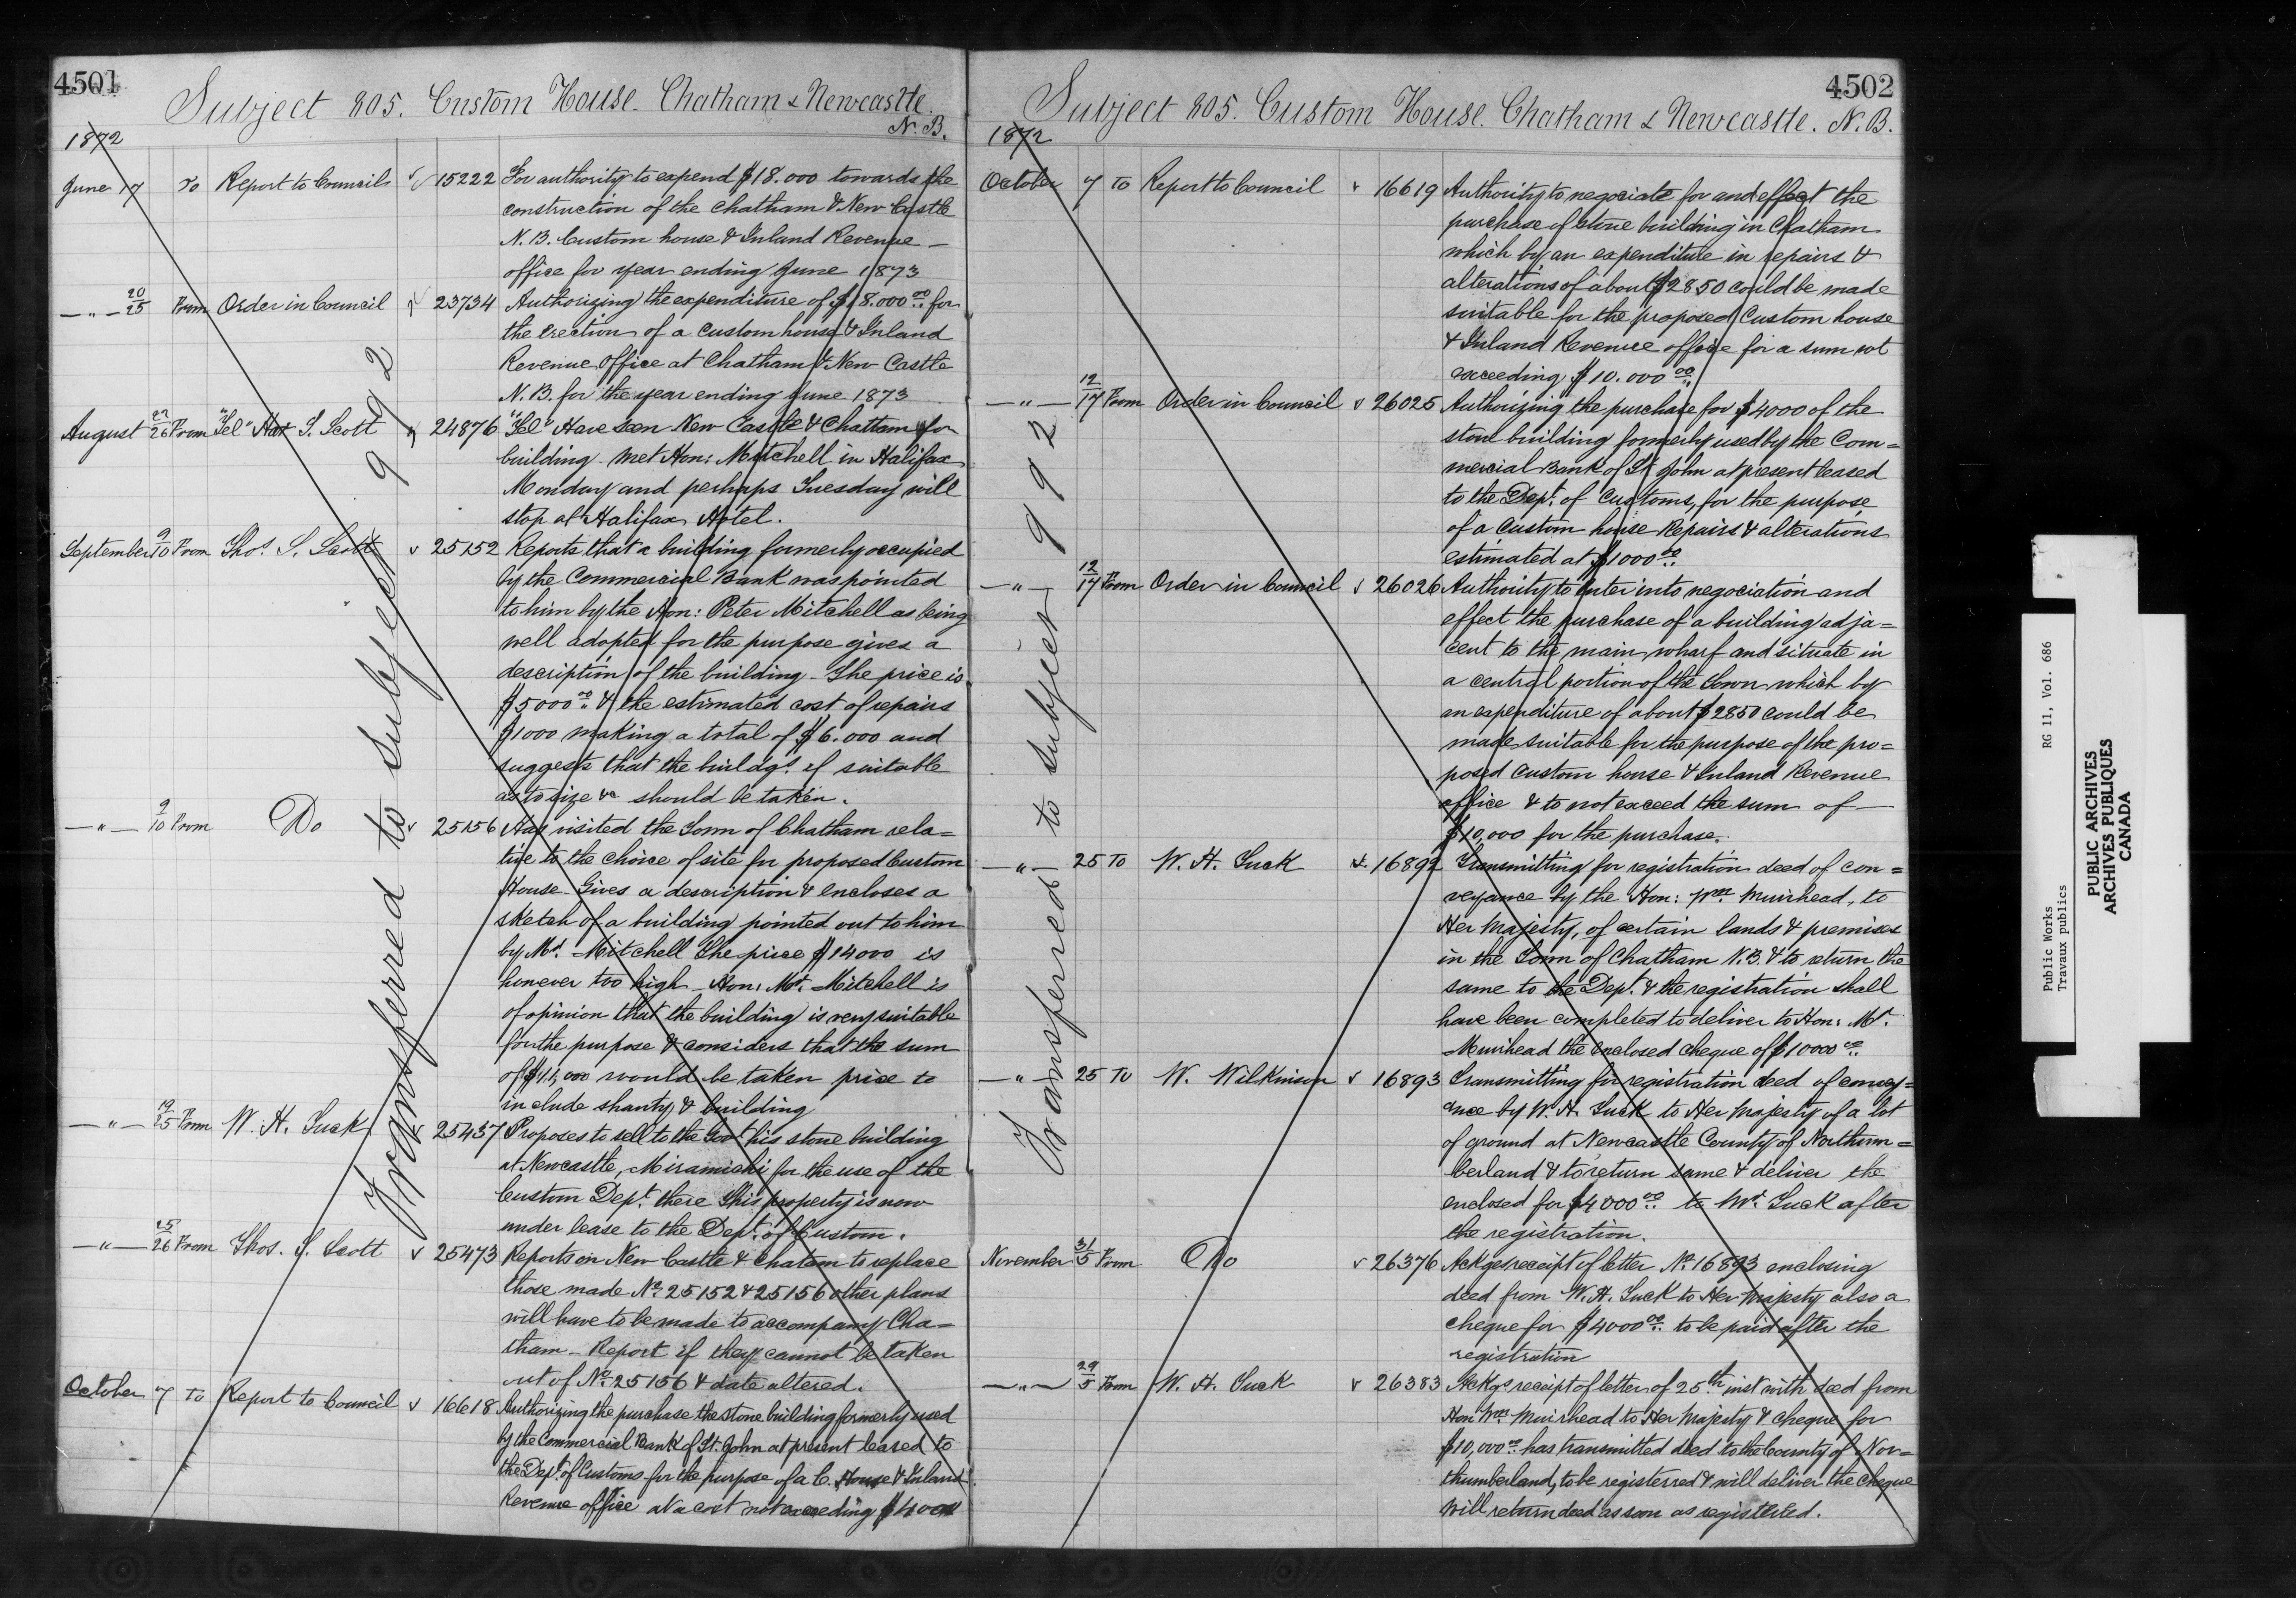 4501
Subject 805. Custom House. Chatham & Newcastle.
N. B.
1872
June 17 To Report to Councils 15222 For authority to expend $18.000 towards the
construction of the Chatham & New Castle
N. B. Custom house & Inland Revenue –
office for year ending June 1873
–"– 20/25 From Order in Council 23734 Authorizing the expenditure of $18.000 00 for
the erection of a custom house & Inland
Revenue Office at Chatham & New Castle
N. B. for the year ending June 1873
August 27/26 From "Tel" S. Scott 24876 "Tel" Have seen New Castle & Chattam for
building – Met Hon: Mitchell in Halifax
Monday and perhaps Tuesday will
stop at Halifax Hotel.
September 9/10 From Thos. S. Scott 25152 Reports that a building formerly occupied
by the Commercial Bank was pointed
to him by the Hon: Peter Mitchell as being
well adopted for the purpose gives a
description of the building – The price is
$5000 00 & the estimated cost of repairs
$1000 making a total of $6.000 and
suggests that the buildgs. if suitable
as to size &c should be taken.
–"– 9/10 From Do 25156 Has visited the Town of Chatham rela=
tive to the choice of site for proposed Custom
House – Gives a description & encloses a
sketch of a building pointed out to him
by Mr. Mitchell The price $14000 is
however too high – Hon: Mr. Mitchell is
of opinion that the building is very suitable
for the purpose & considers that the sum
of $11,000 would be taken price to
include shanty & building
–"– 19/25 From W. H. Tuck 25437 Proposes to sell to the Govt his stone building
at Newcastle, Miramichi for the use of the
Custom Dept. there This property is now
under lease to the Dept. of Custom.
–"– 25/26 From Thos. S. Scott 25473 Reports on New Castle & Chatam to replace
those made No. 25152 & 25156 other plans
will have to be made to accompany Cha=
tham – Report if they cannot be taken
out of No. 25156 & date altered.
October 7 To Report to Council 16618 Authorizing the purchase the stone building formerly used
by the Commercial Bank of St. John at present leased to
the Dept. of Customs for the purpose of a C. House & Inland
Revenue office at a cost not exceeding $4000
Transferred to Subject 992
4502
Subject 805. Custom House. Chatham & Newcastle. N. B.
1872
October 7 To Report to Council 16619 Authority to negociate for and effect the
purchase of stone building in Chatham
which by an expenditure in repairs &
alterations of about $2850 could be made
suitable for the proposed Custom house
& Inland Revenue office for a sum not
exceeding $10.000 00
–"– 12/17 From Order in Council 26025 Authorizing the purchase for $4000 of the
stone building formerly used by the Com=
mercial Bank of St John at present leased
to the Dept. of Customs, for the purpose
of a Custom house Repairs & alterations
estimated at $1000 00
–"– 12/17 From Order in Council 26026 Authority to enter into negociation and
effect the purchase of a building adja=
cent to the main wharf and situate in
a central portion of the Town which by
an expenditure of about $2850 could be
made suitable for the purpose of the pro=
posed Custom house & Inland Revenue
office & to not exceed the sum of –
$10,000 for the purchase.
–"– 25 To W. H. Tuck 16892 Transmitting for registration deed of con=
veyance by the Hon: Wm. Muirhead, to
Her Majesty, of certain lands & premises
in the Town of Chatham N. B. & to return the
same to the Dept. & the registration shall
have been completed to deliver to Hon: Mr.
Muirhead the enclosed cheque of $10000 00
–"– 25 To W. Wilkinson 16893 Transmitting for registration deed of convey=
ance by W. H. Tuck to Her Majesty of a lot
of ground at Newcastle County of Northum=
berland & to return same & deliver the
enclosed for $4000 00 to Mr. Tuck after
the registration.
November 31/5 From Do 26376 Ackges receipt of letter No. 16893 enclosing
deed from W. H. Tuck to Her Majesty also a
cheque for $4000 00 to be paid after the
registration
–"– 29/5 From W. H. Tuck 26383 Ackgs receipt of letter of 25th inst with deed from
Hon Wm. Muirhead to Her Majesty & cheque for
$10,000 00 has transmitted deed to the County of Nor=
thumberland, to be registerred & will deliver the cheque
will return deed as soon as registered.
Transferred to Subject 992
Public Works RG 11, Vol. 686
Travaux publics
PUBLIC ARCHIVES
ARCHIVES PUBLIQUES
CANADA